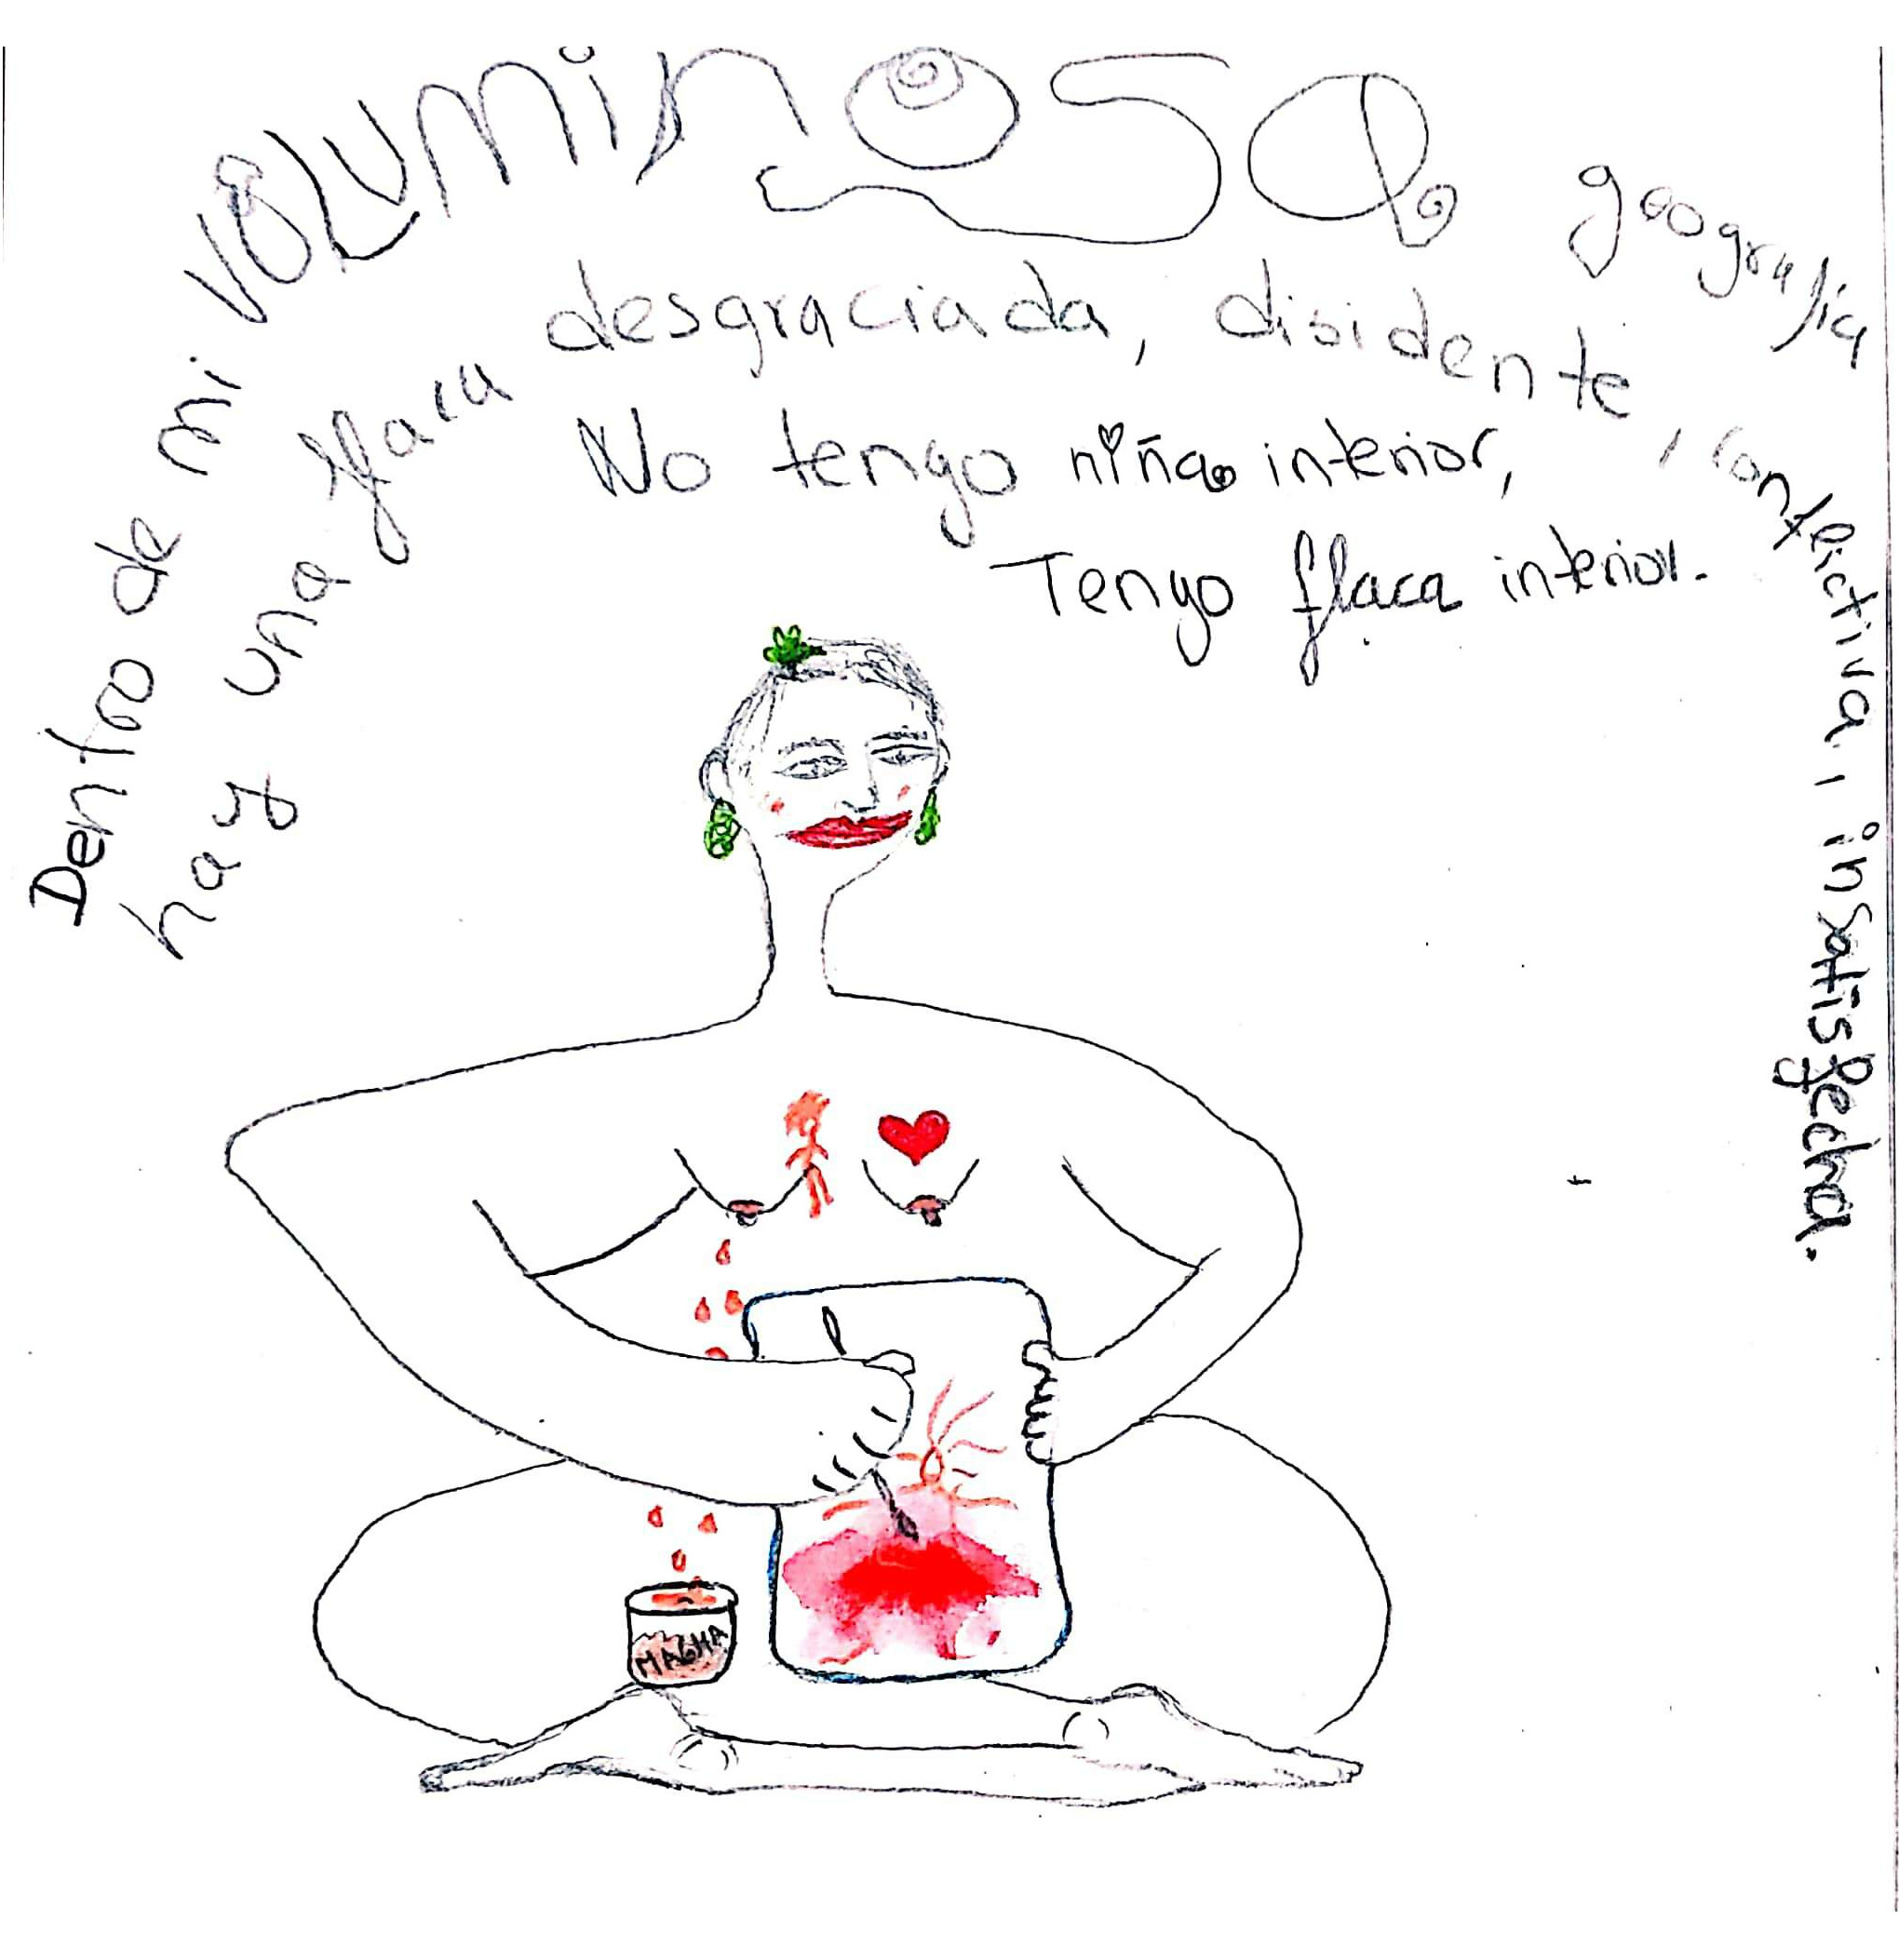 Dentro de mi VOLUMINOSA geografía
hay una flaca desgraciada, disidente, conflictiva, insatisfecha.
No tengo niña interior,
Tengo flaca interior.
MAGMA